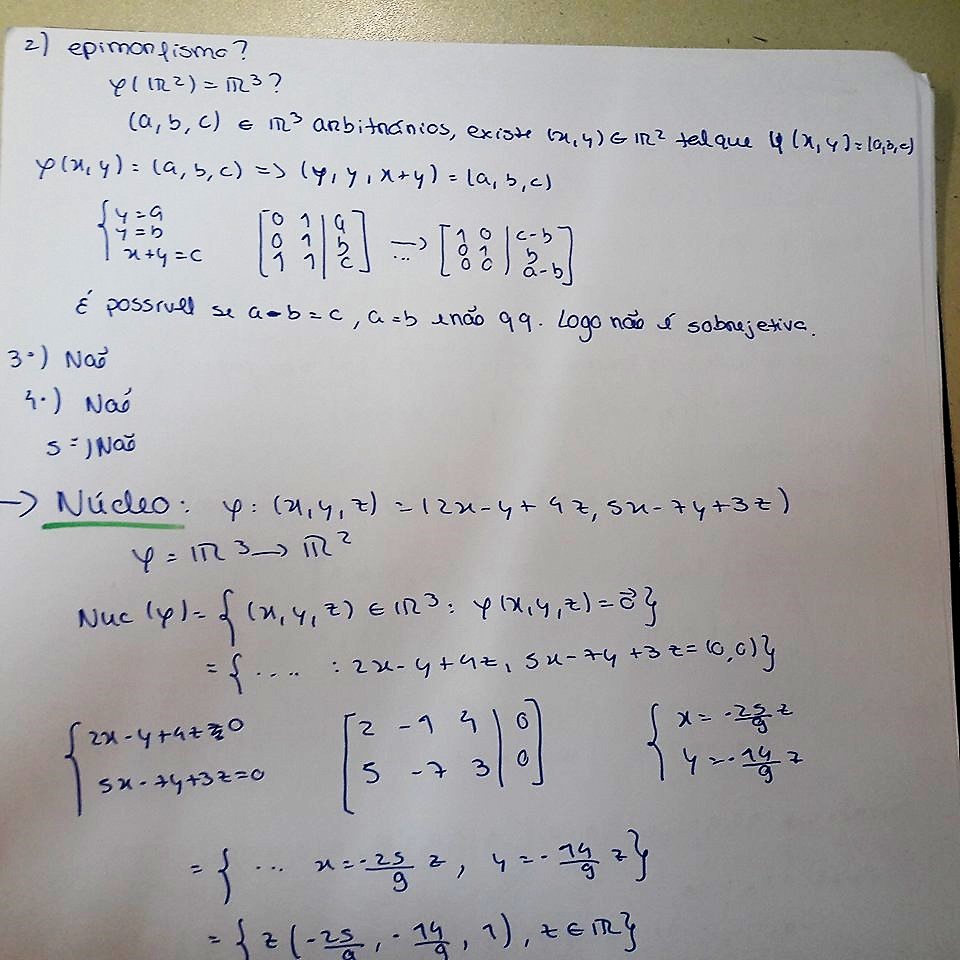 2) epimorfismo?
φ(ℝ²) = ℝ³?
(a, b, c) ∈ ℝ³ arbitrários, existe (x, y) ∈ ℝ² tal que φ(x, y) = (a, b, c)
φ(x, y) = (a, b, c) => (y, y, x+y) = (a, b, c)
{ y = a
y = b
x + y = c
[ 0 1 | a
0 1 | b
1 1 | c ] ...→ [ 1 0 | c-b
0 1 | b
0 0 | a-b ]
É possível se a-b=c, a=b e não qq. Logo não é sobrejetiva.
3.) Naõ
4.) Naõ
5=) Naõ
→ Núcleo: φ: (x, y, z) = (2x - y + 4z, 5x - 7y + 3z)
φ = ℝ³ → ℝ²
Nuc (φ) = { (x, y, z) ∈ ℝ³ : φ(x, y, z) = 0⃗ }
= { .... : 2x - y + 4z, 5x - 7y + 3z = (0, 0) }
{ 2x - y + 4z = 0
5x - 7y + 3z = 0
[ 2 -1 4 | 0
5 -7 3 | 0 ]
{ x = -25/9 z
y = -14/9 z
= { ... x = -25/9 z, y = -14/9 z }
= { z (-25/9, -14/9, 1), z ∈ ℝ }